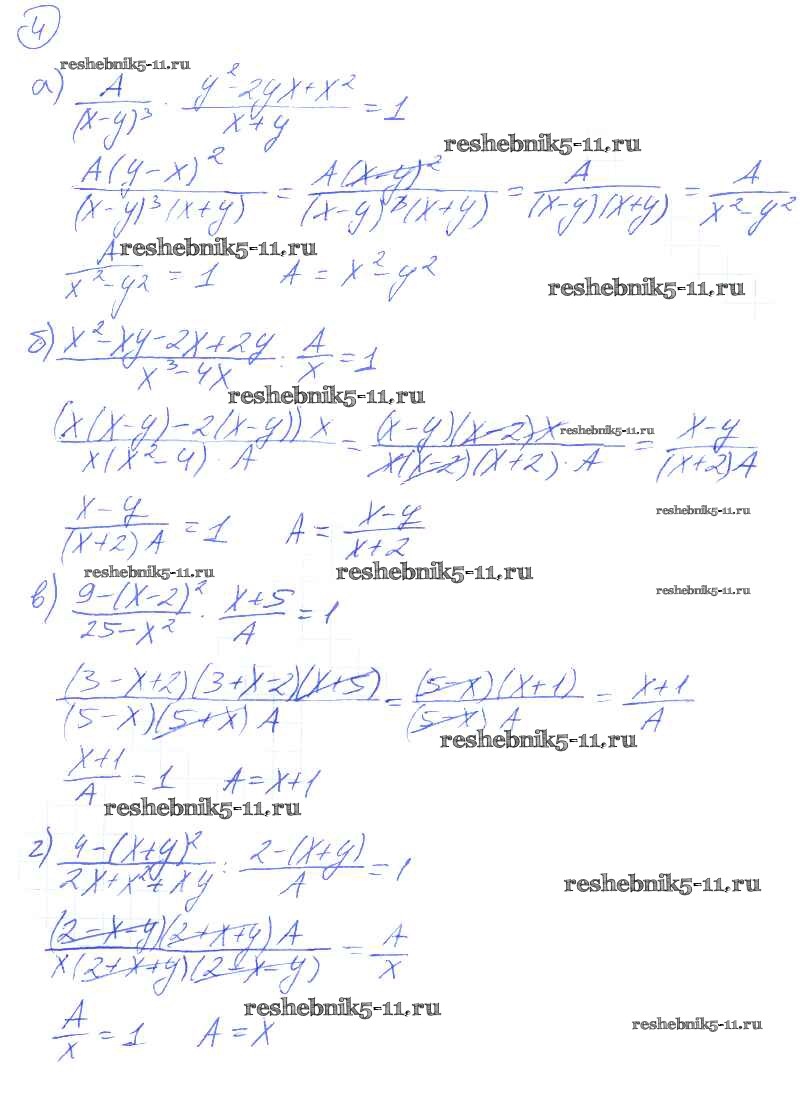 4
reshebnik5-11.ru
а) A/(x-y)³ · (y²-2yx+x²)/(x+y) = 1
reshebnik5-11.ru
A(y-x)²/((x-y)³(x+y)) = A(x-y)²/((x-y)³(x+y)) = A/((x-y)(x+y)) = A/(x²-y²)
reshebnik5-11.ru
A/(x²-y²) = 1 A = x²-y²
reshebnik5-11.ru
б) (x²-xy-2x+2y)/(x³-4x) : A/x = 1
reshebnik5-11.ru
(x(x-y)-2(x-y))x/(x(x²-4)·A) = (x-y)(x-2)x/(x(x-2)(x+2)·A) = (x-y)/((x+2)A)
reshebnik5-11.ru
(x-y)/((x+2)A) = 1 A = (x-y)/(x+2)
reshebnik5-11.ru
reshebnik5-11.ru
reshebnik5-11.ru
reshebnik5-11.ru
в) (9-(x-2)²)/(25-x²) · (x+5)/A = 1
(3-x+2)(3+x-2)(x+5)/((5-x)(5+x)A) = (5-x)(x+1)/((5-x)A) = (x+1)/A
reshebnik5-11.ru
(x+1)/A = 1 A = x+1
reshebnik5-11.ru
г) (4-(x+y)²)/(2x+x²+xy) : (2-(x+y))/A = 1
reshebnik5-11.ru
(2-x-y)(2+x+y)A/(x(2+x+y)(2-x-y)) = A/x
reshebnik5-11.ru
A/x = 1 A = x
reshebnik5-11.ru